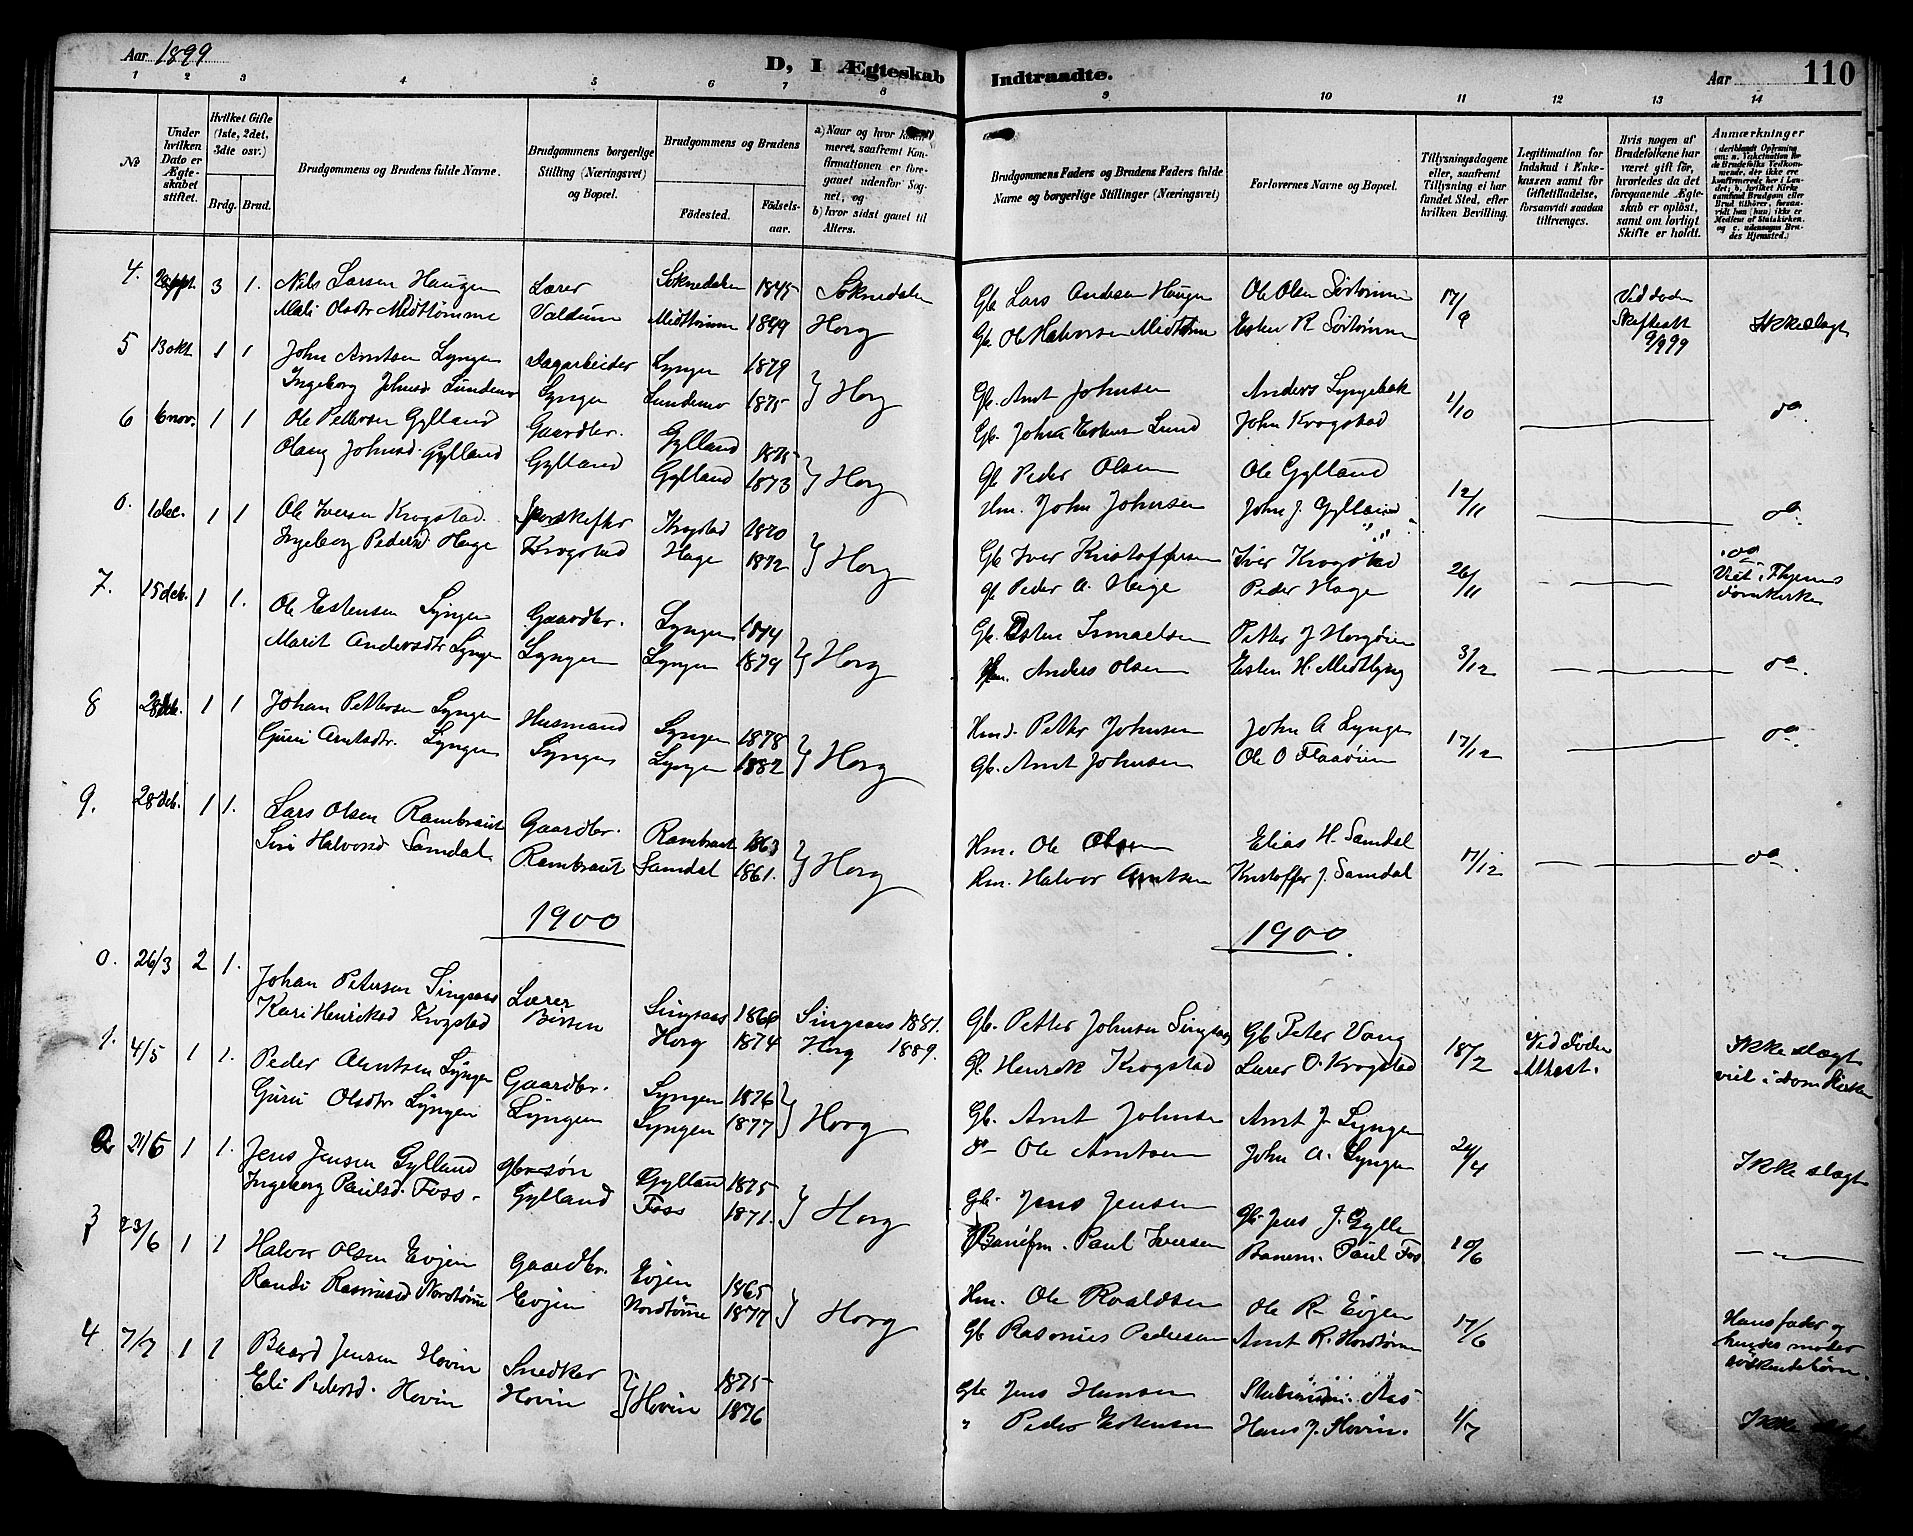 Aar 1899
D, I Ægteskab Indtraadte.
Aar 110
1 2 3 4 5 6 7 8 9 10 11 12 13 14
No
Under hvilken Dato er Ægteskabet stiftet.
Hvilket Gifte (1ste, 2det, 3die osv.)
Brdg. Brud.
Brudgommens og Brudens fulde Navne.
Brudgommens borgerlige Stilling (Næringsvei) og Bopæl.
Brudgommens og Brudens
Fødested. Fødsels-aar.
a) Naar og hvor
meret, saafremt Kon-
firmationen er fore-
gaaet udenfor Sog-
net, og
b) hvor sidst gaaet til
Alters.
Brudgommens Faders og Brudens Faders fulde
Navne og borgerlige Stillinger (Næringsvei)
Forlovernes Navne og Bopæl.
Tillysningsdagene
eller, saafremt
Tillysning ei har
fundet Sted, efter
hvilken Bevilling.
Legitimation for
Indskud i Enke-
kassen samt for
Giftetilladelse,
forsaavidt saadan
tiltrænges.
Hvis nogen af
Brudefolkene har
været gift før,
hvorledes da det
foregaaende Ægte-
skab er opløst,
samt om lovligt
Skifte er holdt.
Anmærkninger
4. 3 1. Nils Larsen Haugen Lærer Soknedalen 1845 Soknedalen Gb. Lars Andersen Haugen Ole Olsen Sørtømme 17/9 Ved døden
Mali Olsdtr Midttømme Valdum Midttømme 1849 Horg Gb. Ole Halvorsen Midttømme Esten R Sørtømme Skifteatt 9/9 99 Ikke slægt
5 13 okt 1 1 John Arntsen Lyngen Dagarbeider Lyngen 1879 Gb. Arnt Johnsen Anders Lyngebak 1/10 do
Ingeborg Johnsd Lundemo Lyngen Lundemo 1875 Horg Gb. John Estensen Lund John Krogstad
6 6 nov. 1 1 Ole Pettersen Gylland Gaardbr. Gylland 1875 Gb Peder Olsen Ole Gylland 12/11 do
Johnsd. Gylland Gylland Gylland 1873 Horg Hm. John Johnsen John J. Gylland
0. 1 dec. 1 1 Ole Iversen Krogstad. Krogstad 1870 Gb Iver Kristoffersen Iver Krogstad 26/11 do
Ingeborg Pedersd Hage Krogstad Hage 1872 Horg Gb Peder A. Hage Peder Hage Viet i Thjems domkirke
7. 15 deb. 1 1. Ole Estensen Lyngen Gaardbr. Lyngen 1874 Gb. Esten Ismaelsen Petter J Horgøien 3/12
Marit Andersdtr Lyngen Lyngen Lyngen 1879 Horg Anders Olsen Esten H. Midtlyng do.
8 28 deb. 1 1 Johan Pettersen Lyngen Husmand Lyngen 1878 Hmd. Petter Johnsen John A Lyngen 17/12 do
Guri Arntsdtr. Lyngen Lyngen Lyngen 1882 Horg Gb. Arnt Johnsen Ole O Flaaøien
9. 28 deb. 1 1. Lars Olsen Rambraut Gaardbr. Rambraut 1863 Hm. Ole Olsen Elias H. Samdal 17/12 do
Siri Halvorsd Samdal Rambraut Samdal 1861. Horg Hm. Halvor Arntsen Kristoffer J. Samdal
1900 1900.
0. 26/3 2 1. Johan Petersen Singsaas Lærer Singsaas Singsaas 1881. Gb. Petter Johnsen Singsaas Gb Peter Vang 18/2 Ved døden Ikke slægt
Kari Henriksd Krogstad Horg 1874 Horg 1889. Gb. Henrik Krogstad Lærer O. Krogstad Attest. viet i domkirken
1. 4/5 1 1. Peder Arntsen Lyngen Gaardbr. Lyngen 1876 Gb. Arnt Johnsen Arnt J. Lyngen
Guri Olsdtr Lyngen Lyngen Lyngen 1877 Horg do Ole Arntsen John A. Lyngen Ikke slægt
2 1 1. Jens Jensen Gylland gbr søn Gylland 1875 Gb. Jens Jensen Gb. Jens J. Gylle 10/6
Ingeborg Paulsd. Foss. Gylland Foss 1871. Horg Paul Iversen Banem. Paul Foss
3 23/6 1 1 Halvor Olsen Evjen Gaardbr. Evjen 1865 Hm. Ole Roaldsen Ole R. Evjen 17/6 Hans fader og
Randi Rasmusd Nordtømme Evjen Nordtømme 1877 Horg Gb Rasmus Pedersen Arnt R. Nordtømme hendes moder søskendebørn.
4 7/7 1 1 Baard Jensen Hovin Snedker 1875 Gb. Jens Hansen Aas 1/7
Eli Pedersd. Hovin Hovin Hovin 1876 " Peder Estensen Hans J. Hovin. Ikke slægt